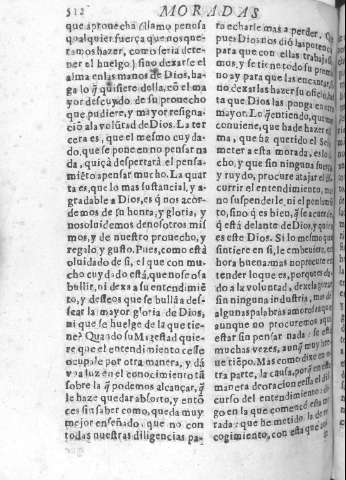 512 MORADAS
que aprouecha (llamo penosa
qualquier fuerça que nos que-
ramos hazer, como seria dete-
ner el huelgo) sino dexarse el
alma en las manos de Dios, ha-
ga lo q̃ quisiere della, cõ el ma
yor descuydo de su prouecho
que pudiere, y mayor resigna-
ciõ a la volũtad de Dios. La ter
cera es, que el mesmo cuyda-
do, que se pone en no pensar na
da, quiçà despertarà el pensa-
miẽto a pensar mucho. La quar
ta es, que lo mas sustancial, y a-
gradable a Dios, es q̃ nos acor-
demos de su honra, y gloria, y
nos oluidemos de nosotros mis
mos, y de nuestro prouecho, y
regalo y gusto. Pues, como està
oluidado de si, el que con mu-
cho cuydado està, que no se osa
bullir, ni dexa a su entendimiẽ
to, y desseos que se bullã a des-
sear la mayor gloria de Dios,
ni que se huelge de la que tie-
ne? Quando su Magestad quie-
re que el entendimiento cesse
ocupale por otra manera, y dà
vna luz en el conocimiento tã
sobre la q̃ podemos alcançar, q̃
le haze quedar absorto, y entõ
ces sin saber como, queda muy
mejor enseñado, que no con
todas nuestras diligencias pa-
ra echarle mas a perder. Que
pues Dios nos diò las potencias
para que con ellas
mos, y se tiene todo su premio
no ay para que las encantar, si-
no dexarlas hazer su oficio, has
ta que Dios las ponga en otro
mayor. Lo q̃ entiendo, que mas
conuiene, que ha de hazer el al
ma, que ha querido el Señor
meter a esta morada, es lo di-
cho, y que sin ninguna fuerça,
y ruydo, procure atajar el dis-
currir el entendimiento, mas
no suspenderle, ni el pensamiẽ
to, sino q̃ es bien, q̃ se acuerde,
q̃ està delante de Dios, y quien
es este Dios. Si lo mesmo que
siẽte en si, le embeuiere, en
hora buena: mas no procure en
tender lo que es, porque es da-
do a la voluntad, dexela gozar
sin ninguna industria, mas de
algunas palabras amorosas que
aunque no procuremos aqui
estar sin pensar nada se està
muchas vezes, aunq̃ muy bre-
ue tiẽpo. Mas como dixe en o-
tra parte, la causa, porq̃ en esta
manera de oracion cessa el dis
curso del entendimiento
go en la que comencè esta mo
rada: y que he metido la de re-
cogimiento, con esta que